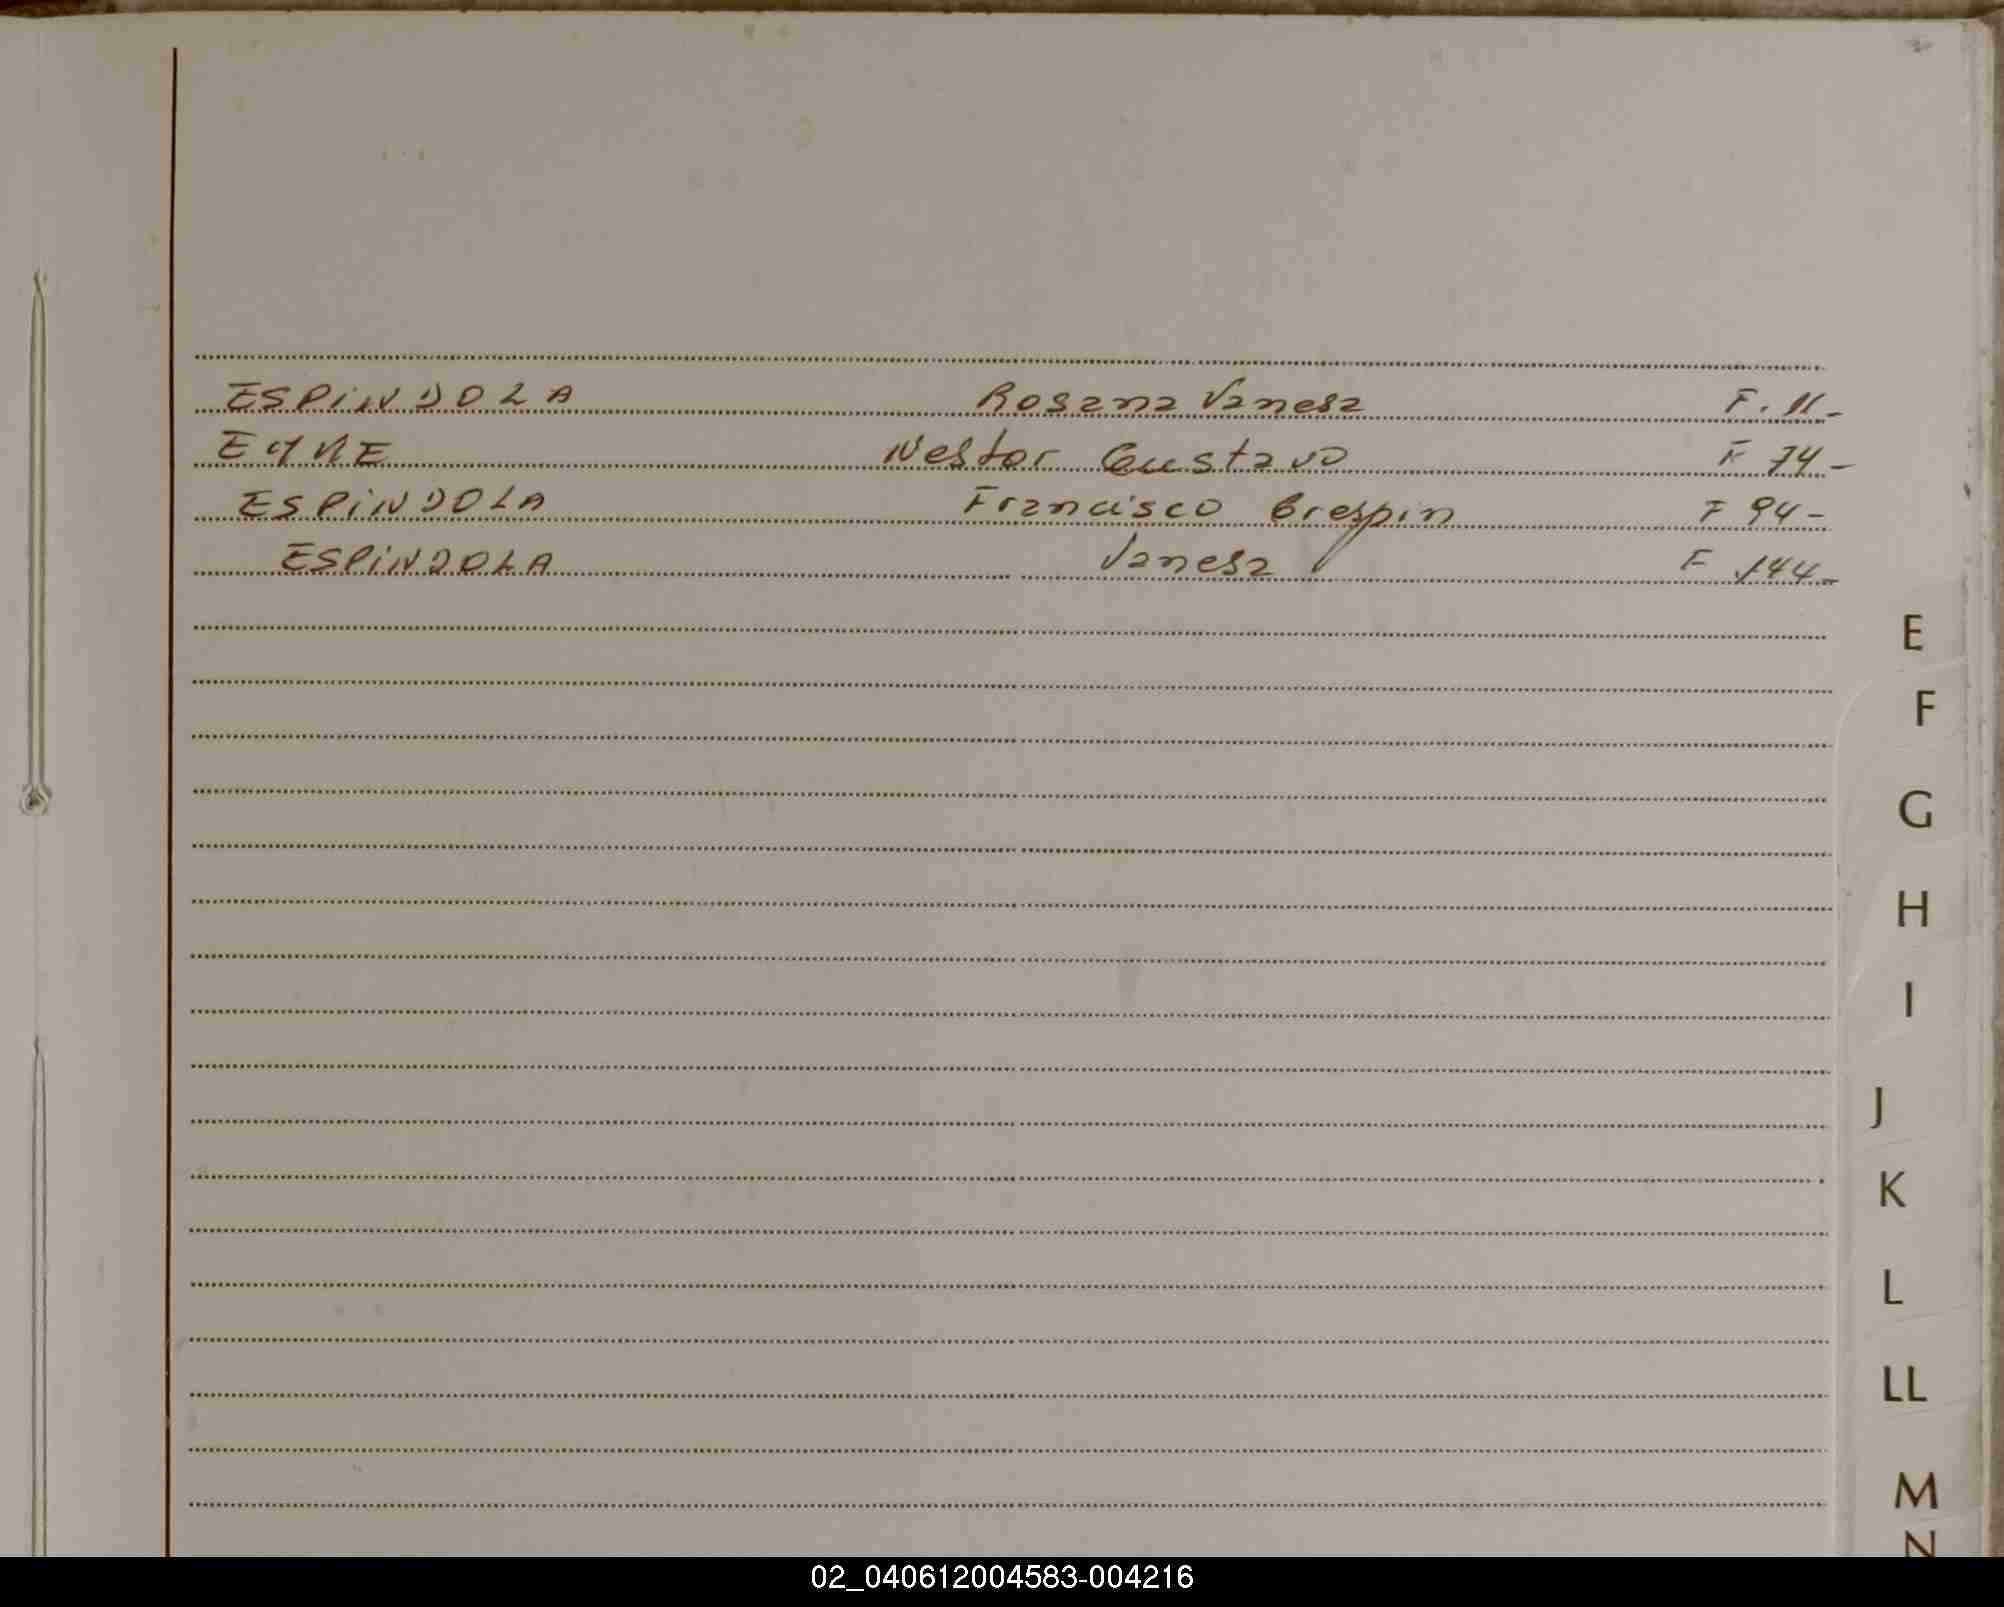 ESPINDOLA Rosana Vanesa F. 11-
EYNE Nestor Gustavo F 74-
ESPINDOLA Francisco Crespin F 94-
ESPINDOLA Vanesa F 144-
E
F
G
H
I
J
K
L
LL
M
N
02_040612004583-004216